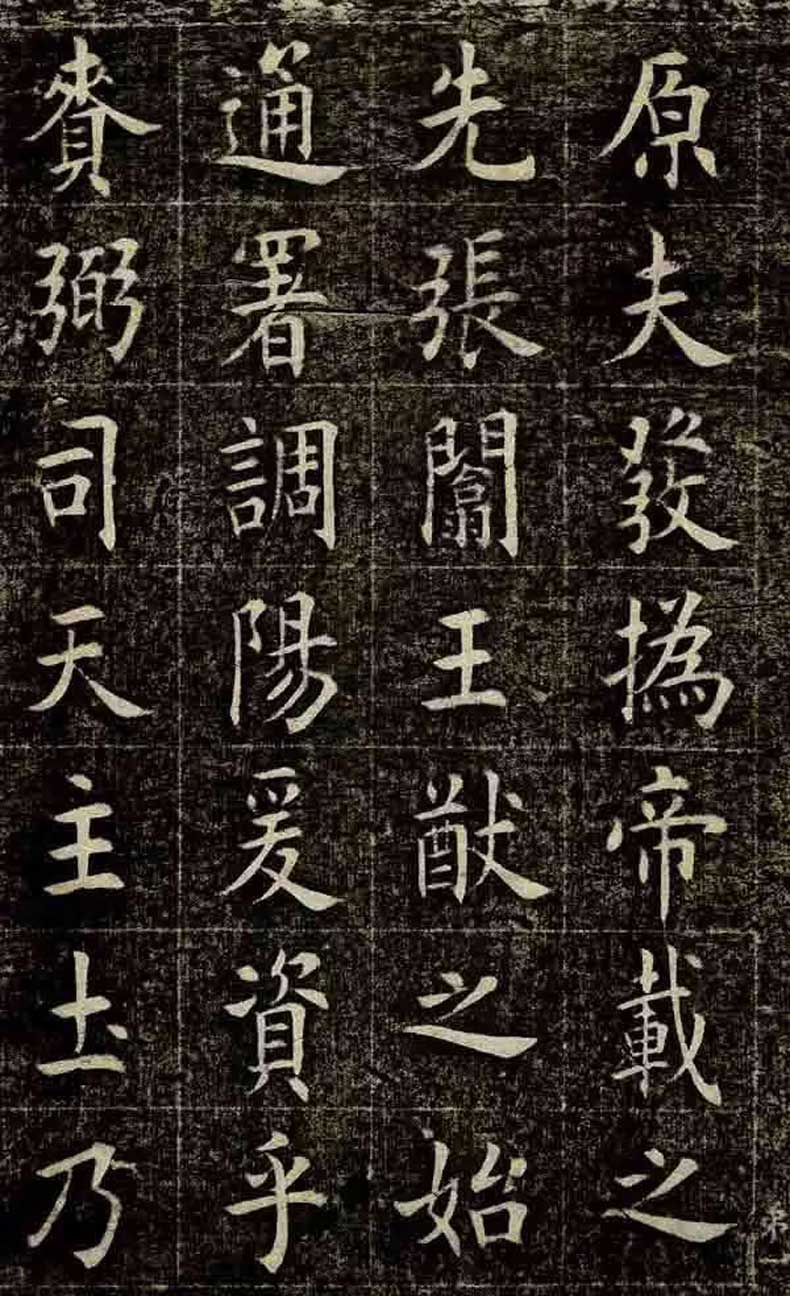 原夫發撝帝載之
先張闡王猷之始
通署調陽爰資乎
賚弼司天主土乃